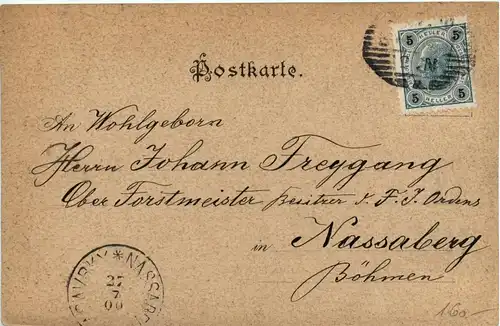 Postkarte.
5 HELLER 5
5 HELLER 5
An Wohlgeborn
Herrn Johann Freygang
Ober Forstmeister Besitzer d. F. J. Ordens
in Nassaberg
Böhmen
NASSAB
25
7
00
160